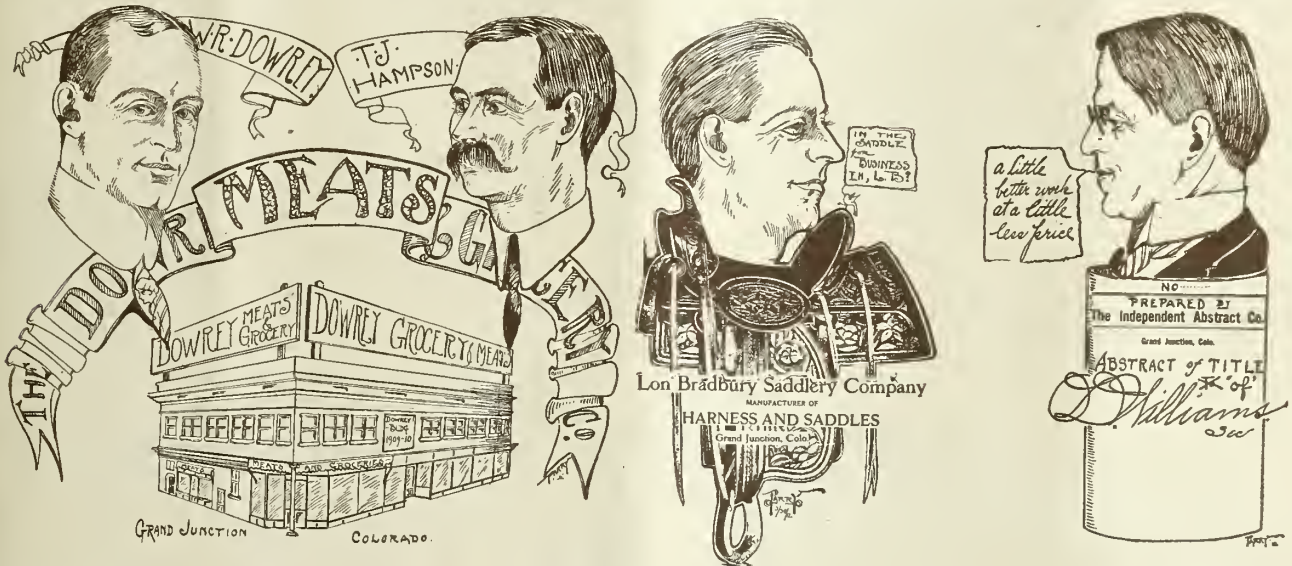 W·R·DOWREY
·T·J·
HAMPSON·
THE DO
R
MEATS
& G
C·O·
DOWREY MEATS
& GROCERY
DOWREY GROCERY & MEATS
DOWREY
BLDG
1909-10
MEATS AND GROCERIES
GRAND JUNCTION COLORADO.
IN THE
SADDLE
for
BUSINESS
EH, L. B?
Lon Bradbury Saddlery Company
MANUFACTURER OF
HARNESS AND SADDLES
Grand Junction, Colo.
PARRY
a little
better work
at a little
less price
NO
PREPARED BY
The Independent Abstract Co.
Grand Junction, Colo.
ABSTRACT of TITLE
"of"
D.D. Williams
Sec
PARRY